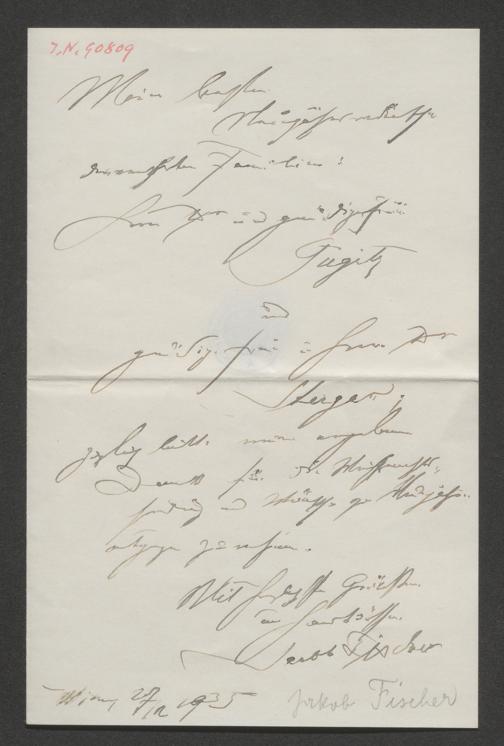 J.N. 90809
Mein besten
Neujahrswünsche
den werthen Familien:
Herrn Dr und gnädige Frau
Fugitz
und
gnädige Frau u Herrn Dr
Sterger;
bitte meine ergebenen
Dank für die Weihnachts-
und Wünsche zu Neujahr
entgegen zu nehmen.
Mit herzlichsten Grüßen
u Handküssen
Jacob Fischer
Wien, 28/12 1935
Jakob Fischer